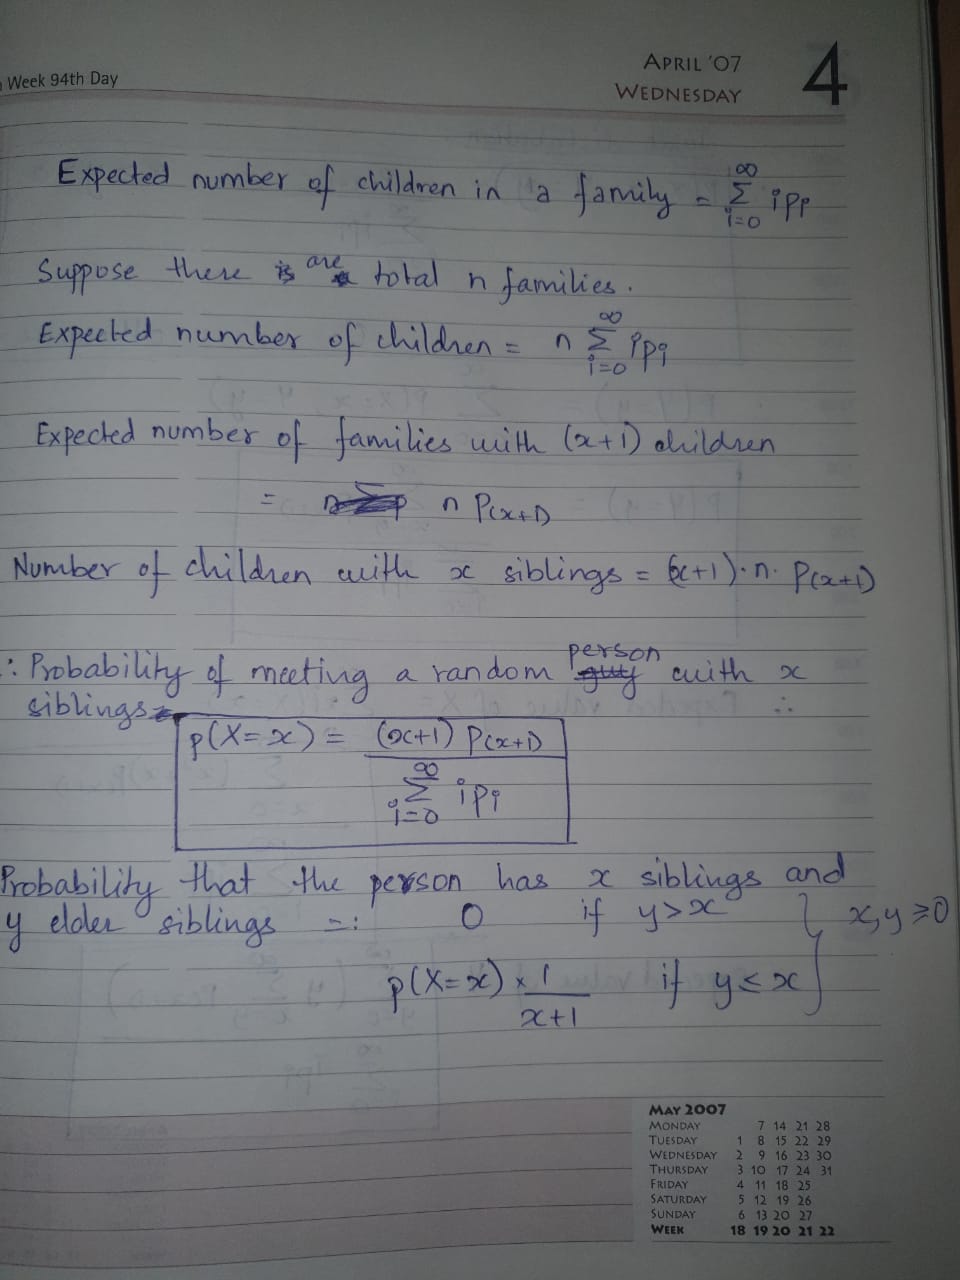 Week 94th Day
APRIL '07
WEDNESDAY
4
Expected number of children in a family = ∞Σi=0 ipi
Suppose there are total n families.
Expected number of children = n ∞Σi=0 ipi
Expected number of families with (x+1) children
= n P(x+1)
Number of children with x siblings = (x+1)·n· P(x+1)
∴ Probability of meeting a random person with x
siblings
p(X=x) = (x+1) P(x+1)
∞Σi=0 ipi
Probability that the person has x siblings and
y elder siblings = : 0 if y>x } x,y ≥0
p(X=x) × 1/x+1 if y≤x
MAY 2007
MONDAY 7 14 21 28
TUESDAY 1 8 15 22 29
WEDNESDAY 2 9 16 23 30
THURSDAY 3 10 17 24 31
FRIDAY 4 11 18 25
SATURDAY 5 12 19 26
SUNDAY 6 13 20 27
WEEK 18 19 20 21 22